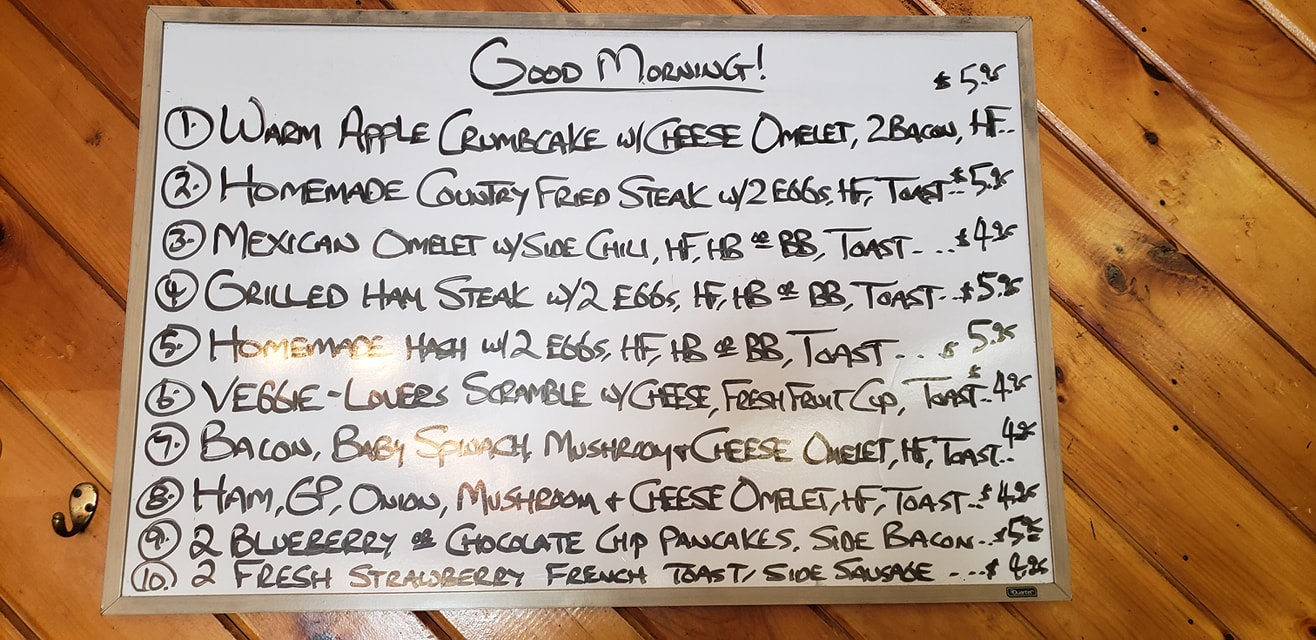 GOOD MORNING!
$5.95
1. WARM APPLE CRUMBCAKE W/CHEESE OMELET, 2 BACON, HF..
2. HOMEMADE COUNTRY FRIED STEAK W/2 EGGS, HF, TOAST..$5.95
3. MEXICAN OMELET W/SIDE CHILI, HF, HB OR BB, TOAST....$4.95
4. GRILLED HAM STEAK W/2 EGGS, HF, HB OR BB, TOAST..$5.95
5. HOMEMADE HASH W/2 EGGS, HF, HB OR BB, TOAST... $5.95
6. VEGGIE-LOVERS SCRAMBLE W/CHEESE, FRESH FRUIT CUP, TOAST..$4.95
7. BACON, BABY SPINACH, MUSHROOM + CHEESE OMELET, HF, TOAST..4.95
8. HAM, GP, ONION, MUSHROOM + CHEESE OMELET, HF, TOAST..$4.95
9. 2 BLUEBERRY OR CHOCOLATE CHIP PANCAKES, SIDE BACON..$5.95
10. 2 FRESH STRAWBERRY FRENCH TOAST/SIDE SAUSAGE ...$4.95
Quartet